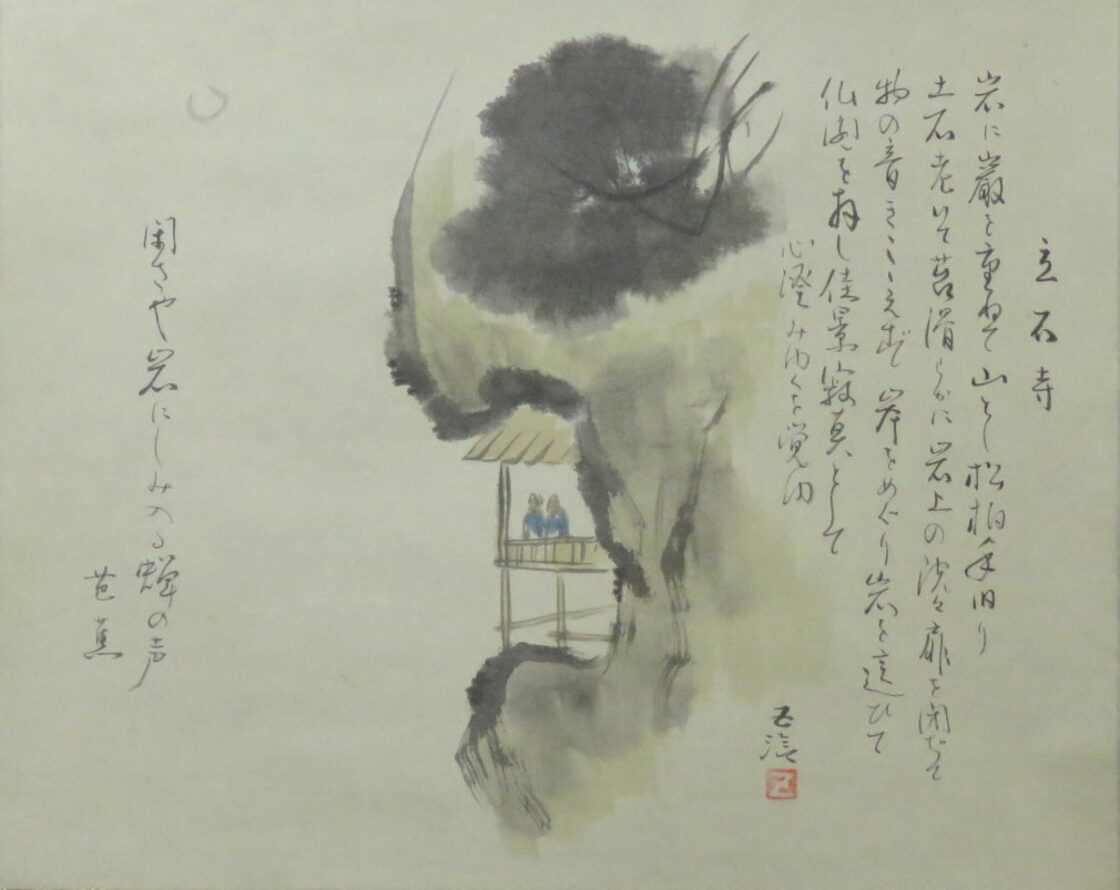 立石寺
岩に巌を重ねて山とし松柏年旧り
土石老いて苔滑らかに岩上の院々扉を閉ぢて
物の音きこえず岸をめぐり岩を這ひて
仏閣を拝し佳景寂莫として
心澄みゆくを覚ゆ
閑さや岩にしみ入る蝉の声
芭蕉